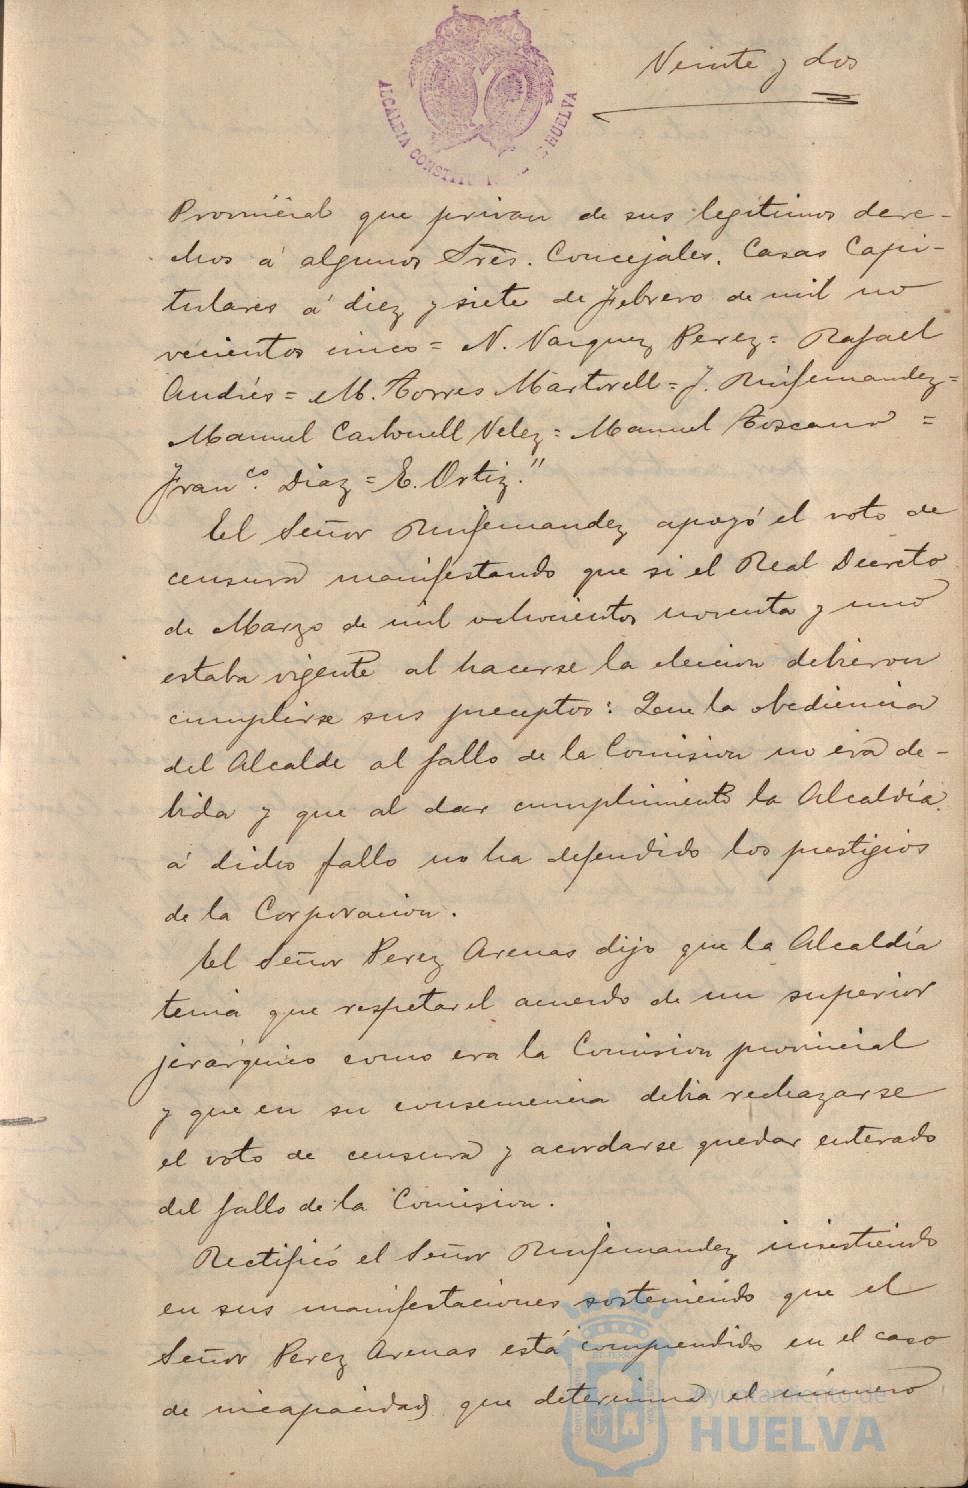 Veinte y dos
ALCALDIA CONSTITUCIONAL DE HUELVA
Provincial que privan de sus legitimos dere-
chos á algunos Sres. Concejales. Casas Capi-
tulares á diez y siete de Febrero de mil no
vecientos cinco = N. Vazquez Perez = Rafael
Andrés = M. Torres Martorell = J. Ruifernandez =
Manuel Carbonell Velez = Manuel Toscano =
Franco. Diaz = E. Ortiz."
El Señor Ruifernandez apoyó el voto de
censura manifestando que si el Real Decreto
de Marzo de mil ochocientos noventa y uno
estaba vigente al hacerse la eleccion debieron
cumplirse sus preceptos: Que la obediencia
del Alcalde al fallo de la Comision no era de-
bida y que al dar cumplimiento la Alcaldía
á dicho fallo no ha defendido los prestigios
de la Corporacion.
El Señor Perez Arenas dijo que la Alcaldía
tenia que respetar el acuerdo de un superior
jerárquico como era la Comision provincial
y que en su consecuencia debia rechazarse
el voto de censura y acordarse quedar enterado
del fallo de la Comision.
Rectificó el Señor Ruifernandez insistiendo
en sus manifestaciones sosteniendo que el
Señor Perez Arenas está comprendido en el caso
de incapacidad que determina el número
Ayuntamiento de
HUELVA